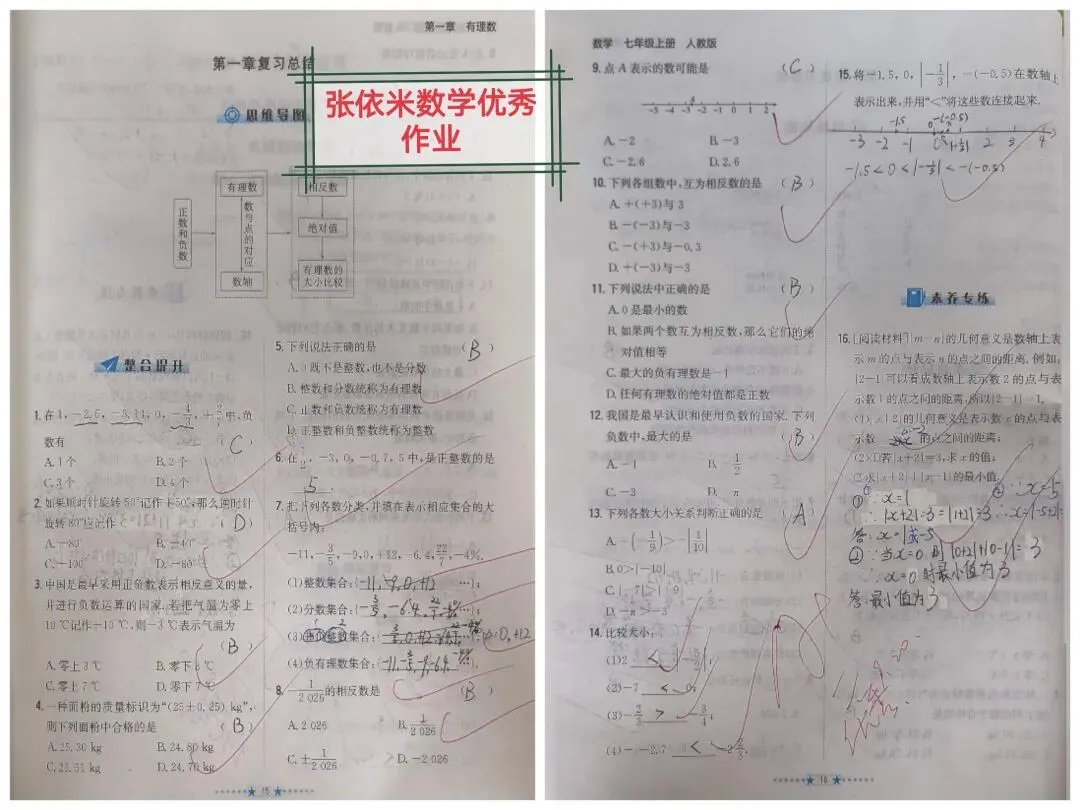 第一章 有理数
第一章复习总结
张依米数学优秀
作业
思维导图
正数和负数
有理数
数与点的对应
数轴
相反数
绝对值
有理数的
大小比较
整合提升
数有 C
A.1个 B.2个
C.3个 D.4个
2.如果顺时针旋转50°记作+50°,那么逆时针
旋转80°应记作 (D)
A.-80°
3.中国是最早采用正负数表示相反意义的量,
并进行负数运算的国家.若把气温为零上
10℃记作+10℃,则-3℃表示气温为
(B)
A.零上3℃ B.零下3℃
C.零上7℃ D.零下7℃
4.一种面粉的质量标识为“(25±0.25) kg”,
则下列面粉中合格的是 (B)
A.25.30 kg B.24.80 kg
C.25.51 kg D.24.70 kg
5.下列说法正确的是 (B)
A.0既不是整数,也不是分数
B.整数和分数统称为有理数
C.正数和负数统称为有理数
D.正整数和负整数统称为整数
-3,0,-0.7,5中,是正整数的是
5.
7.把下列各数分类,并填在表示相应集合的大
括号内:
-11,-3/5,-9,0,+12,-6.4,22/7,-4%.
(1)整数集合:{-11,-9,0,+12 …};
(2)分数集合:
集合:
(4)负有理数集合:
8.-1/2 026的相反数是 (B)
A.2 026 B.1/2 026
C.±1/2 026 D.-2 026
★ 15 ★
数学 七年级上册 人教版
9.点A表示的数可能是 (C)
A
-5 -4 -3 -2 -1 0 1 2
A.-2 B.-3
C.-2.6 D.2.6
10.下列各组数中,互为相反数的是 (B)
A.+(+3)与3
B.-(-3)与-3
C.-(+3)与-0.3
D.+(-3)与-3
11.下列说法中正确的是 (B)
A.0是最小的数
B.如果两个数互为相反数,那么它们的绝
对值相等
C.最大的负有理数是-1
D.任何有理数的绝对值都是正数
12.我国是最早认识和使用负数的国家.下列
负数中,最大的是 (B)
A.-1 B.-1/2
C.-3 D.-π
13.下列各数大小关系判断正确的是 (A)
A.-(-1/9)>-|1/10|
B.0>|-10|
D.-π>-3
14.比较大小:
(2)-7 < 0;
(3)-2/3 > -3/4;
15.将-1.5,0,|-1/3|,-(-0.5)在数轴上
表示出来,并用“<”将这些数连接起来.
-1.5 0 -(-0.5)
-3 -2 -1 |-1/3| 2 3 4
-1.5<0<|-1/3|<-(-0.5)
素养专练
16.[阅读材料]|m-n|的几何意义是数轴上表
示m的点与表示n的点之间的距离.例如,
|2-1|可以看成数轴上表示数2的点与表
示数1的点之间的距离,所以|2-1|=1.
(1)|x+2|的几何意义是表示数x的点与表
示数 的点之间的距离;
(2)①若|x+2|=3,求x的值;
②求|x+2|+|x-1|的最小值.
① ∵x=1 ② ∵x=-5
∴|x+2|=3
②∵当x=0时|0+2|+|0-1|=3
∴x=0时最小值为3
答:最小值为3
★ 16 ★